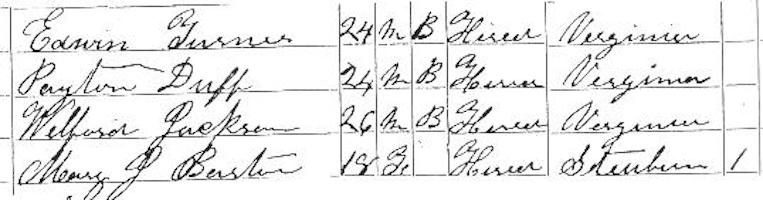 Edwin Turner 24 M B Hired Virginia
Payton Duff 24 M B Hired Virginia
Welford Jackson 26 M B Hired Virginia
Mary J 18 F Hired Steuben 1